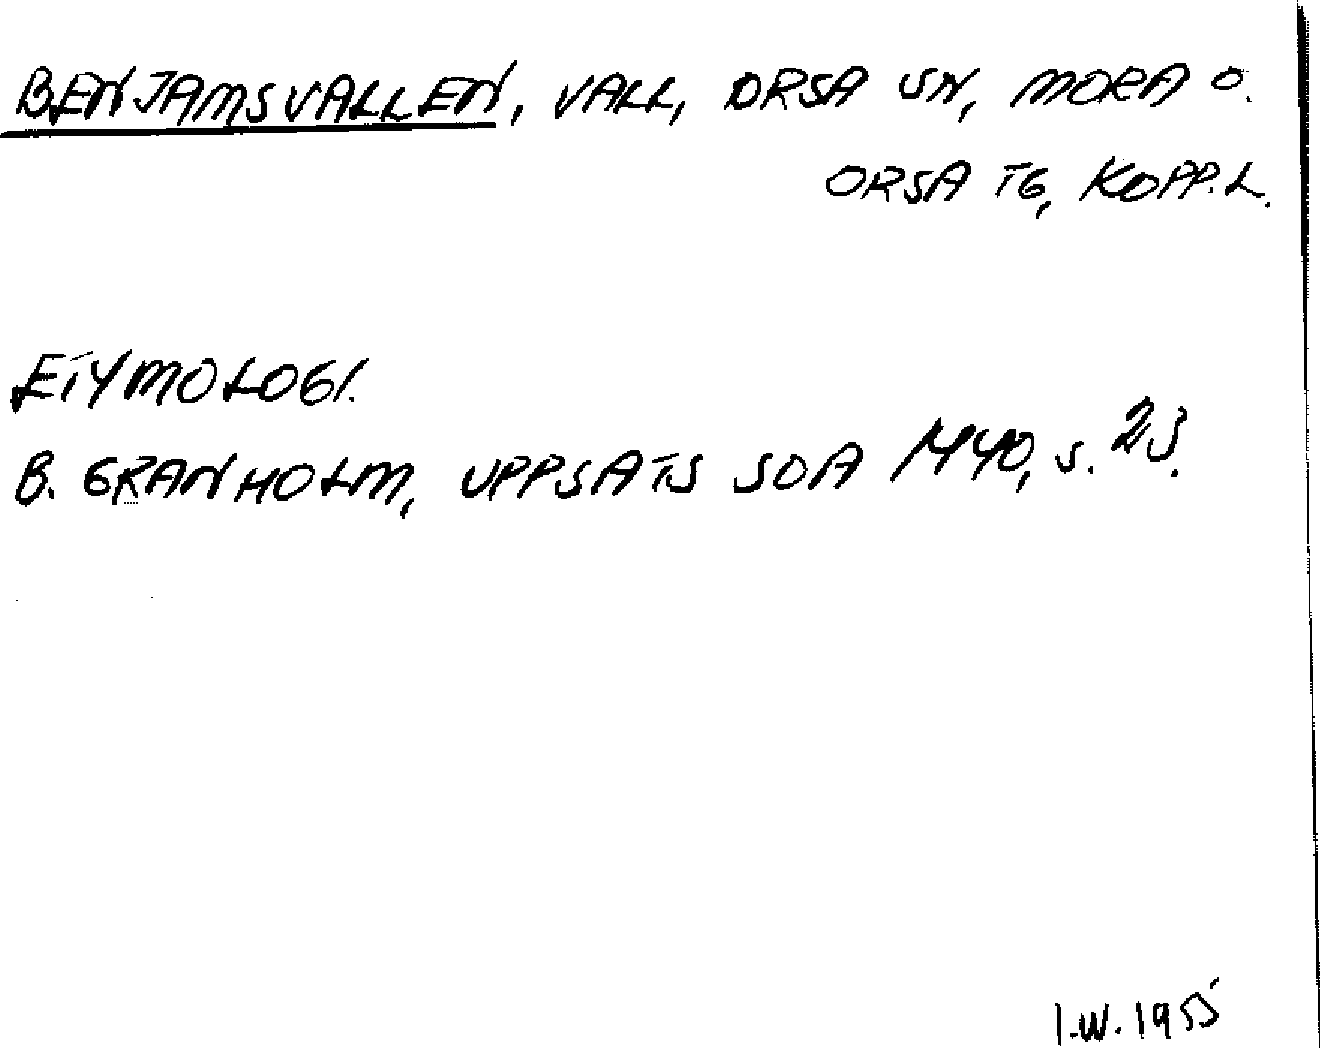 BENJAMSVALLEN, VALL, ORSA SN, MORA O.
ORSA TG, KOPP.L.
ETYMOLOGI.
B. GRANHOLM, UPPSATS SOA 1440, s. 23.
I.W. 1955